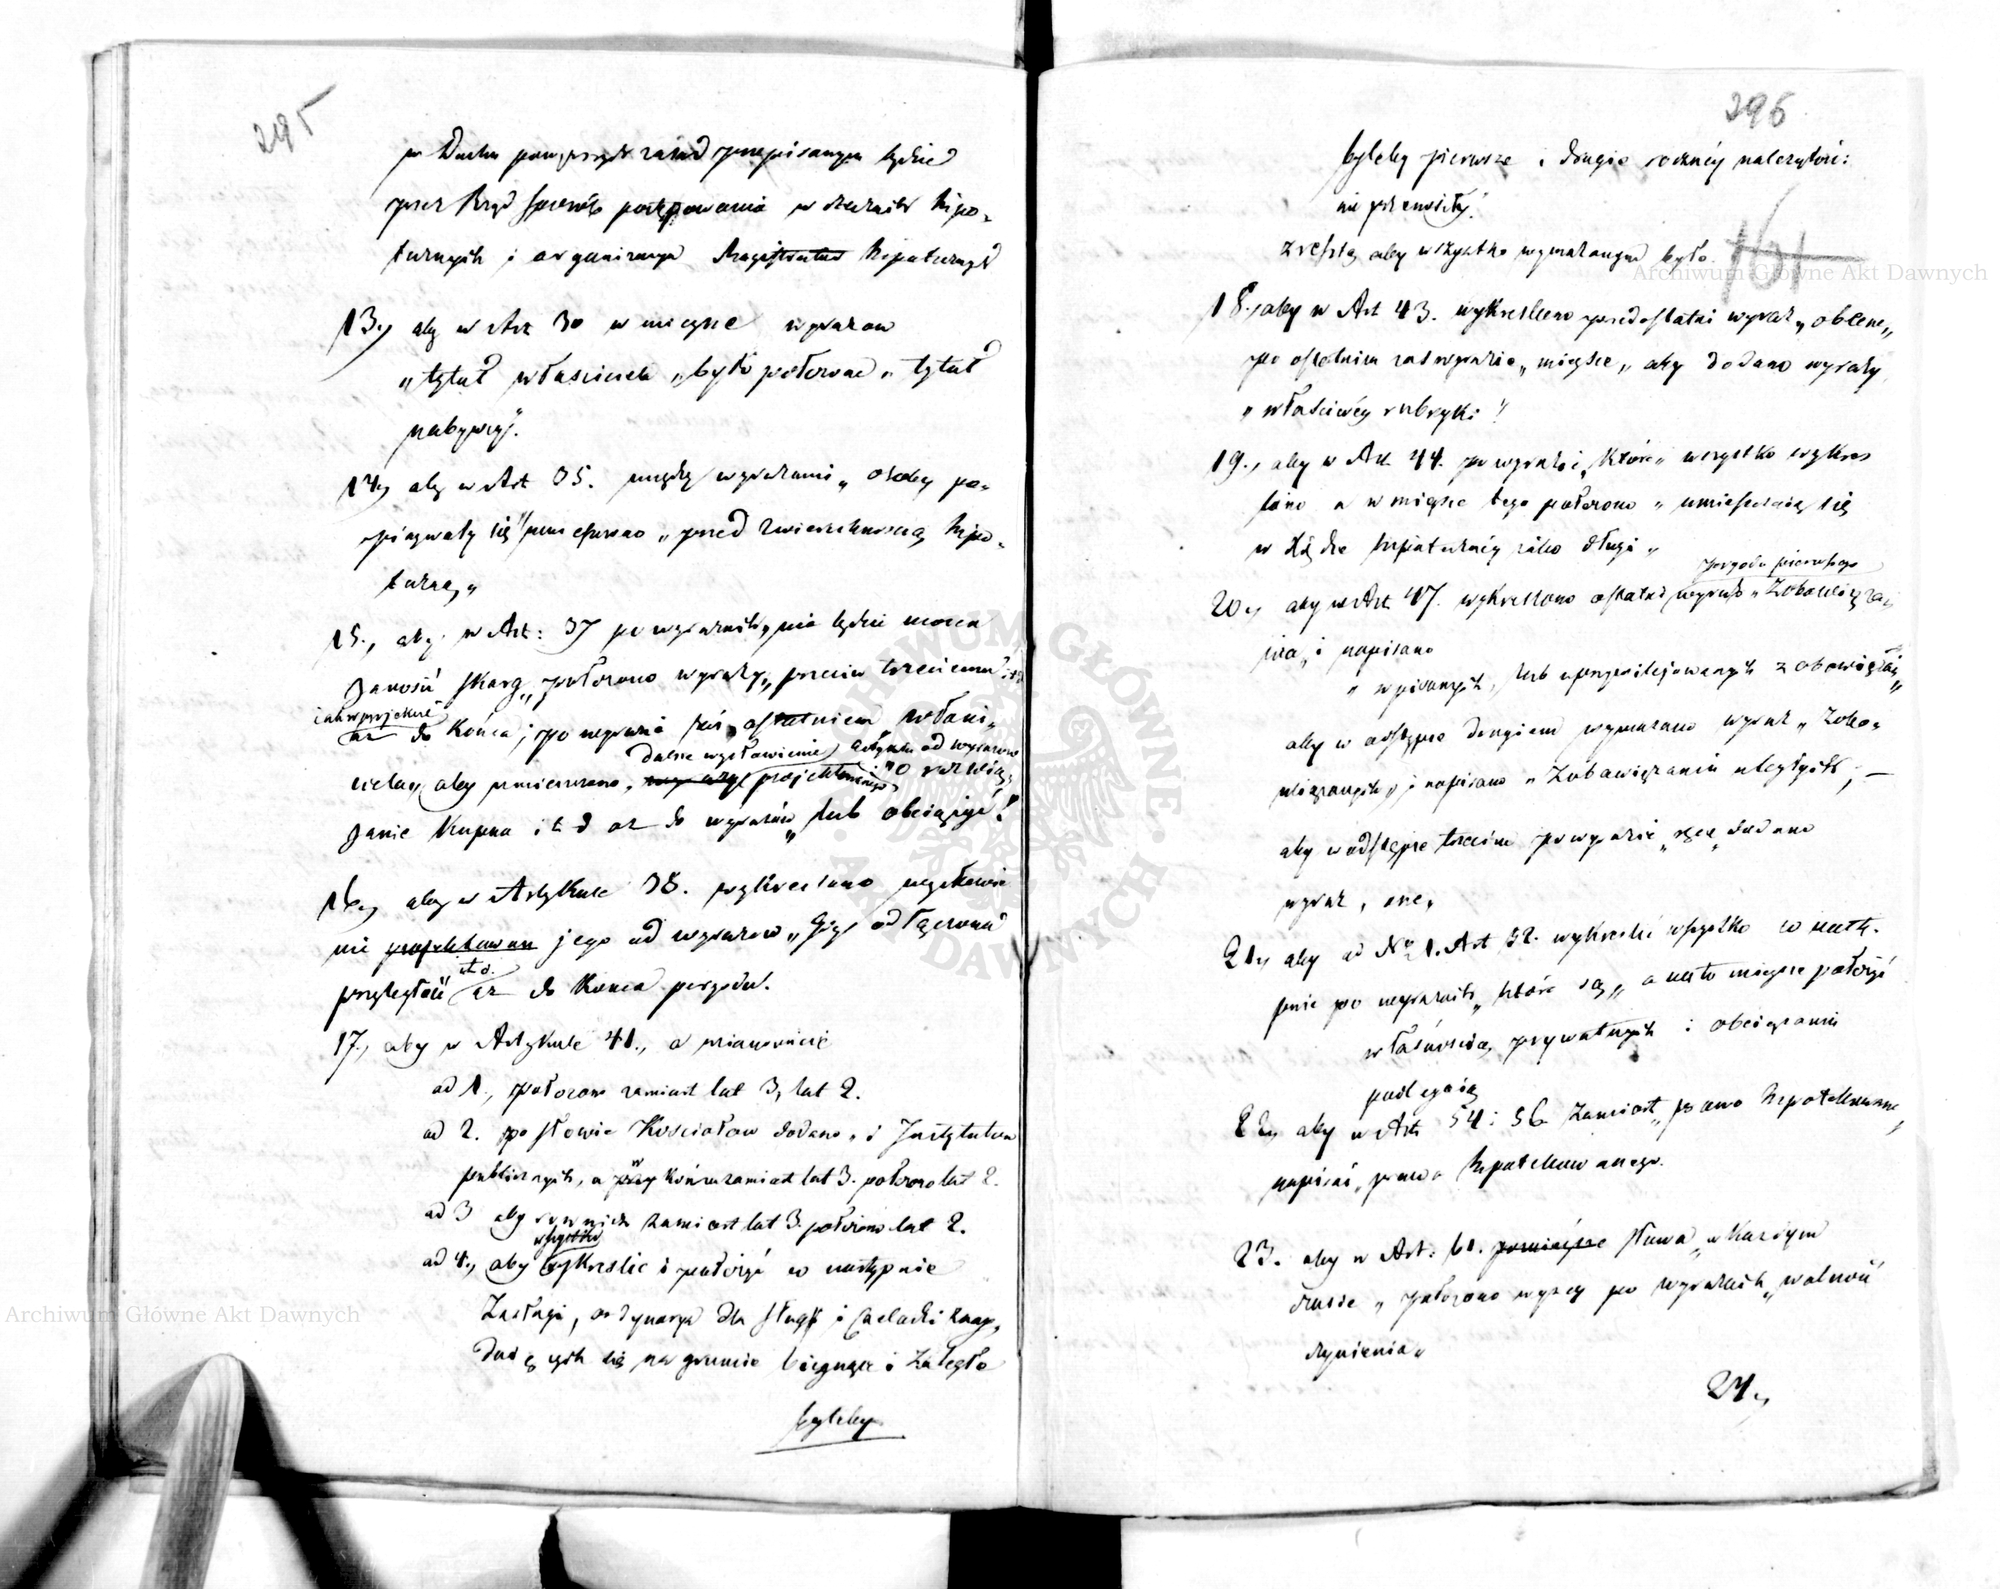 295
w Duchu powyższych zasad przepisanym będzie
przez Rząd sposób postępowania w rzeczach hipo-
tecznych i organizacya Magistratur hipotecznych
13., aby w Art 30 w miejsce wyrazow
„tytuł właściciela „było położone „tytuł
nabywcy".
14., aby w Art 35. między wyrazami „osoby po-
opisywały się" umieszczono „przed zwierzchnością hipo-
teczną„
15., aby w Art: 37 po wyrazach „nie będzie mocen
zanosić skargę„ położono wyrazy„ przeciw trzeciemu
aż do końca; po wyrazie zaś ostatniem właści-
dalsze wysławienie Artykułu od wyrazow
ciela„ aby umieszczono, projektowanego „o rozwią-
zanie kupna i t d aż do wyrazów „lub obciążyć"!
16., aby w Artykule 38. wykreslono wysłowie
nie projektowane jego od wyrazow „Gdy odłączona
przyległość itd. aż do końca peryodu.
17., aby w Artykule 41., a mianowicie
ad 1., położono zamiast lat 3, lat 2.
ad 2. po słowie Kościołow dodano „i Instytutow
publicznych, a przy w końcu zamiast lat 3. położono lat 2.
ad 3 aby rownież zamiast lat 3. położono lat 2.
wszystko
ad 4., aby wykreslic i położyć co następuie
Zasługi, ordynarya dla sług i Czeladzi znay-
duiących się na gruncie bieżące i zaległe
byleby
296
byleby pierwsze i drugie roczney należytości
nie przenosiły.
zresztą aby wszystko wymazanym było.
161
18., aby w Art 43. wykreslono przedostatni wyraz „obecne„
po ostatnim zaś wyrazie „miejsce„ aby dodano wyrazy
„właściwéy rubryki"
19., aby w Art. 44. po wyrazie „które„ wszystko wykres
lono a w miejsce tego położono „umieszczają się
w Księdze hipoteczney iako długi„
peryodu pierwszego
20., aby w Art 47. wykreslono ostatni wyraz „Zobowiąza-
nia„ i napisano
„wpisanych, lub uprzywilejowanych zobowiązań„
aby w odstępie drugiem wymazano wyraz „Zobo-
wiązanych„ i napisano „Zobowiązaniu uległych„; —
aby w odstępie trzecim po wyrazie „są„ dodano
wyraz „one„
21., aby od No 1. Art 52. wykreslić wszystko co nastę-
puie po wyrazach „które są„ a na to miejsce położyć
własnością prywatnych i obciążeniu
podlegaią
22., aby w Art 54 i 56 zamiast „prawo hipotekowane„
napisać „prawa hipotekowanego.
23. aby w Art: 61. pomiejsce słowa „w każdym
czasie„ położono wyżey po wyrazach „wolność
czynienia„
24.,
Archiwum Główne Akt Dawnych
Archiwum Główne Akt Dawnych
ARCHIWUM GŁÓWNE AKT DAWNYCH